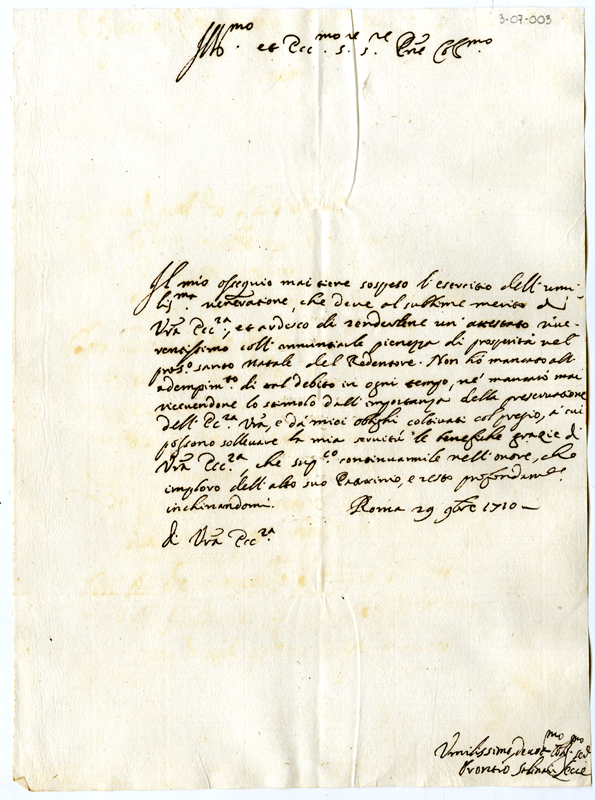 3-07-003
Ill.mo et Ecc.mo s.re s.re Prñe Coll.mo
Il mio ossequio mai tiene sospeso l'esercitio dell'umi-
lis.ma veneratione, che deve al sublime merito di
Vrã Ecc.za, et ardesco di renderlene un'attestato rive-
rentissimo coll'annunciarle pienezza di prosperità nel
pros.o santo Natale del Redentore. Non hò mancato all'
adempim.to di tal debito in ogni tempo, nè mancarò mai
ricevendone lo stimolo dall'importanza della preservatione
dell'Ecc.za Vrã, e dà miei oblighi coltivati col pregio, à cui
possono sollevare la mia servitù le benefiche grazie di
Vrã Ecc.za, che sup.co continuarmile nell'onore, che
imploro dell'alto suo Patrocinio, e resto profondam.e
inchinandomi. Roma 29 9bre 1710
di Vrã Ecc.za
Umilissimo, devot.mo